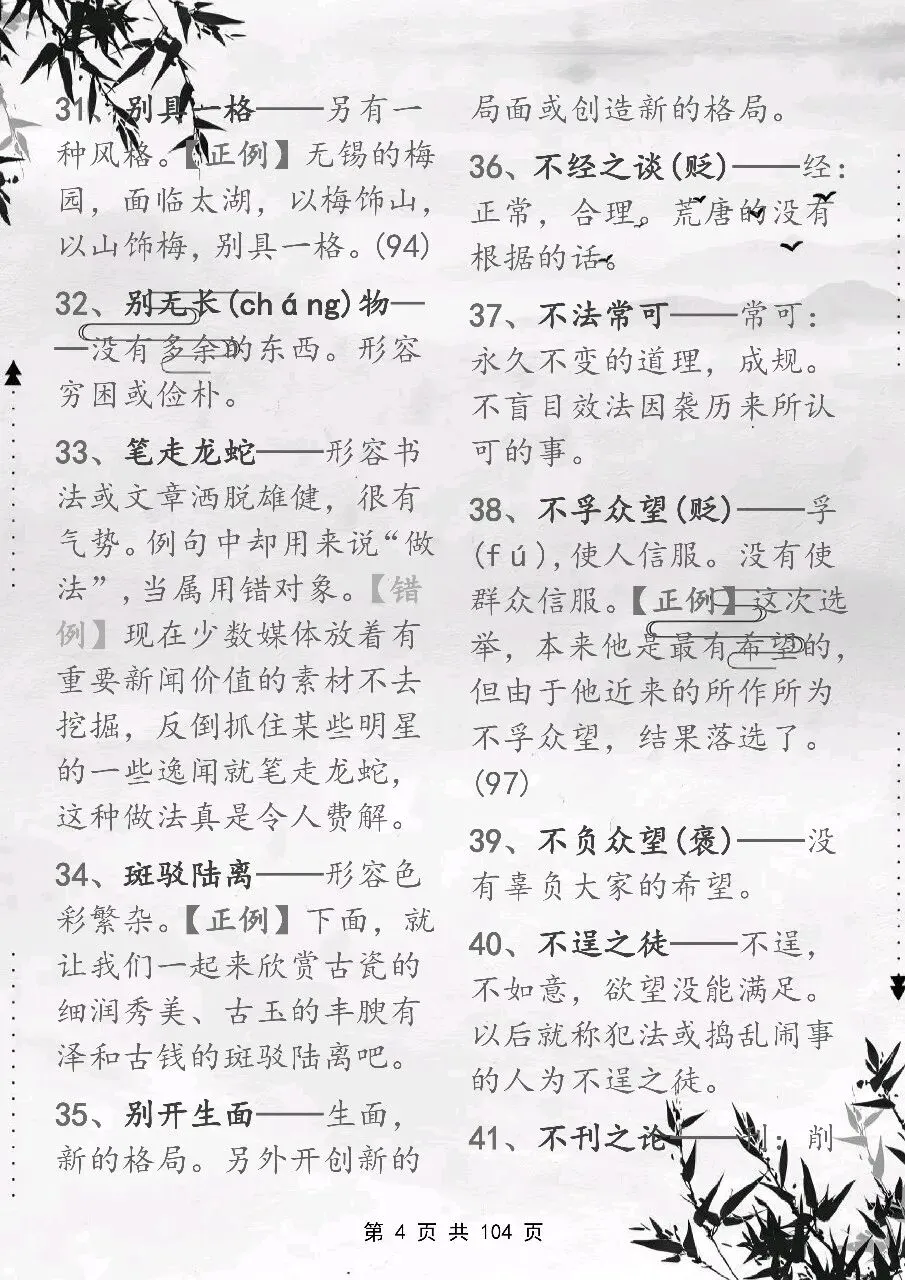 31、别具一格——另有一
种风格。【正例】无锡的梅
园，面临太湖，以梅饰山，
以山饰梅，别具一格。(94)
32、别无长(cháng)物—
—没有多余的东西。形容
穷困或俭朴。
33、笔走龙蛇——形容书
法或文章洒脱雄健，很有
气势。例句中却用来说“做
法”,当属用错对象。【错
例】现在少数媒体放着有
重要新闻价值的素材不去
挖掘，反倒抓住某些明星
的一些逸闻就笔走龙蛇，
这种做法真是令人费解。
34、斑驳陆离——形容色
彩繁杂。【正例】下面，就
让我们一起来欣赏古瓷的
细润秀美、古玉的丰腴有
泽和古钱的斑驳陆离吧。
35、别开生面——生面，
新的格局。另外开创新的
局面或创造新的格局。
36、不经之谈(贬)——经：
正常，合理。荒唐的没有
根据的话。
37、不法常可——常可：
永久不变的道理，成规。
不盲目效法因袭历来所认
可的事。
38、不孚众望(贬)——孚
(fú),使人信服。没有使
群众信服。【正例】这次选
举，本来他是最有希望的，
但由于他近来的所作所为
不孚众望，结果落选了。
(97)
39、不负众望(褒)——没
有辜负大家的希望。
40、不逞之徒——不逞，
不如意，欲望没能满足。
以后就称犯法或捣乱闹事
的人为不逞之徒。
41、不刊之论——刊：削
第 4 页 共 104 页